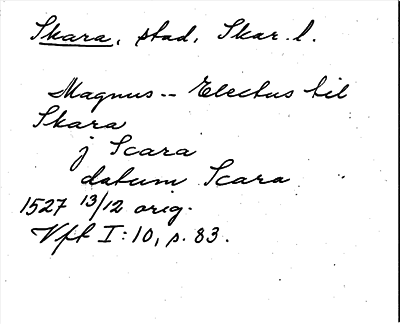 Skara, stad, Skar. l.
Magnus -- Electus til
Skara
j Scara
datum Scara
1527 13/12 orig.
Vfk I:10, s. 83.